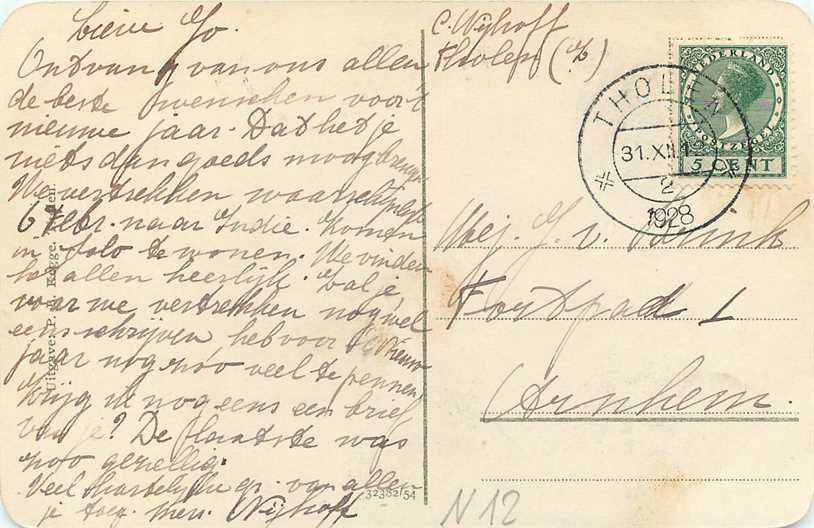 Lieve Jo.
Ontvang van ons allen
de beste wenschen voor't
nieuwe jaar. Dat het je
niets dan goeds moog brengen
We vertrekken waarschijnlijk
6 Febr. naar Indie. Komen
in Solo te wonen. We vinden
het allen heerlijk. Zal je
voor we vertrekken nog wel
eens schrijven heb voor Nieuw
jaar nog zóó veel te pennen
Krijg ik nog eens een brief
van je? De laatste was
zoo gezellig.
Veel hartelijke gr. van allen
je toeg. Mevr. Nijhoff
Uitgave: P. H. Kegge,
32382/54
C. Nijhoff
Tholen
NEDERLAND
POSTZEGEL
5 CENT
THOLEN
31.XII.12
2
1928
Mej. J. v.
Fortpad 1
Arnhem.
N 12